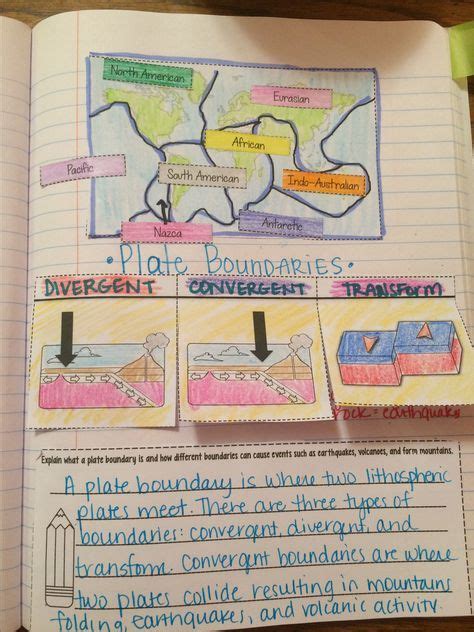 North American
Eurasian
African
Pacific
South American
Indo-Australian
Nazca
Antarctic
• Plate Boundaries •
DIVERGENT CONVERGENT TRANSFORM
rock = earthquake
Explain what a plate boundary is and how different boundaries can cause events such as earthquakes, volcanoes, and form mountains.
A plate boundary is where two lithospheric
plates meet. There are three types of
boundaries: convergent, divergent, and
transform. Convergent boundaries are where
two plates collide resulting in mountains
folding, earthquakes, and volcanic activity.